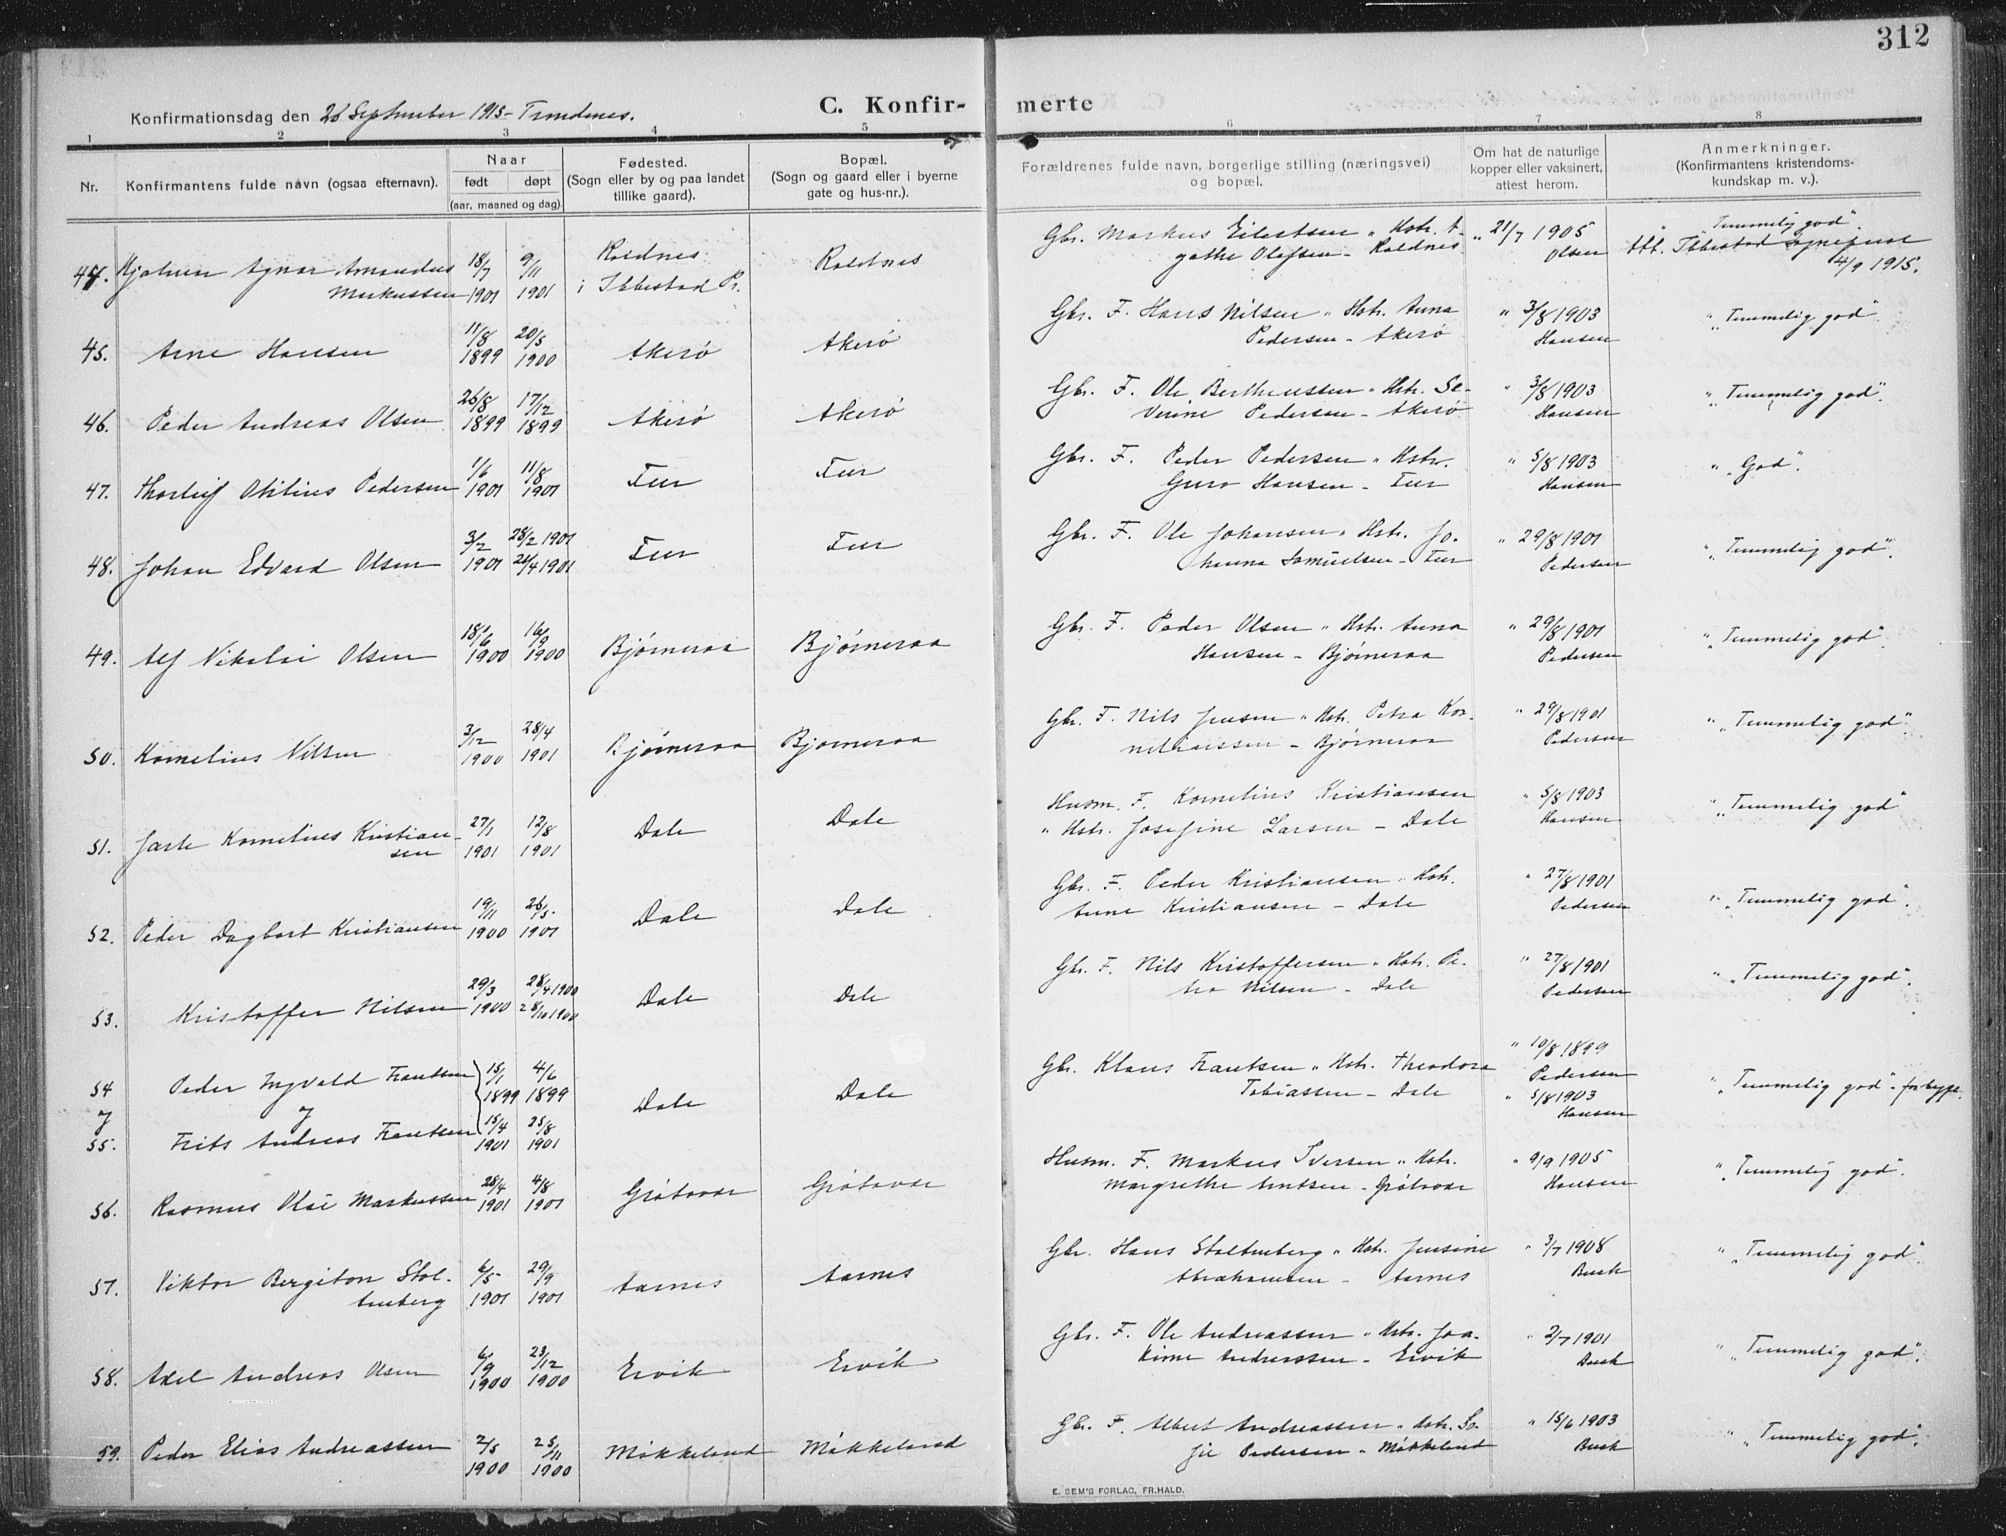 312
Konfirmationsdag den 26 September 1915 - Trondenes.
C. Konfir- merte
1 2 3 4 5 6 7 8
Nr.
Konfirmantens fulde navn (ogsaa efternavn).
Naar
født døpt
(aar, maaned og dag).
Fødested.
(Sogn eller by og paa landet
tillike gaard).
Bopæl.
(Sogn og gaard eller i byerne
gate og hus-nr.).
Forældrenes fulde navn, borgerlige stilling (næringsvei)
og bopæl.
Om hat de naturlige
kopper eller vaksinert,
attest herom.
Anmerkninger.
(Konfirmantens kristendoms-
kundskap m. v.).
44. Hjalmar Agnar Amandus
Markussen
18/7 1901 9/11 1901
Roldnes
i Ibbestad Pr.
Roldnes
Gbr. Markus Eilertsen " Hstr. A-
gathe Olafsen - Roldnes
" 21/7 1905
Olsen
" "Temmelig god".
Att. Ibbestad
4/9 1915.
45. Arne Hansen 11/8 1899 20/5 1900 Akerø Akerø
Gbr. F. Hans Nilsen " Hstr. Anna
Pedersen - Akerø
" 3/8 1903
Hansen
" "Temmelig god"
46. Peder Andreas Olsen 26/8 1899 17/12 1899 Akerø Akerø
Gbr. F. Ole Bertheussen " Hstr. Se-
verine Pedersen - Akerø
" 3/8 1903
Hansen
" "Temmelig god".
47. Thorleif Otilius Pedersen 1/6 1901 11/8 1901 Fur Fur
Gbr. F. Peder Pedersen " Hstr.
Guro Hansen - Fur
" 5/8 1903
Hansen
" "God".
48. Johan Edvard Olsen 3/2 1901 28/2 1901 21/4 1901 Fur Fur
Gbr. F. Ole Johansen " Hstr. Jo-
hanna Samuelsen - Fur
" 29/8 1901
Pedersen
" "Temmelig god".
49. Alf Nikolai Olsen 18/6 1900 16/9 1900 Bjørneraa Bjørneraa
Gbr. F. Peder Olsen " Hstr. Anna
Hansen - Bjørneraa
" 29/8 1901
Pedersen
" "Temmelig god".
50. Kornelius Nilsen 3/12 1900 28/4 1901 Bjørneraa Bjørneraa
Gbr. F. Nils Jensen " Hstr. Petra Kor-
neliussen - Bjørneraa
" 29/8 1901
Pedersen
" "Temmelig god".
51. Jarle Kornelius Kristian-
sen
27/1 1901 12/8 1901 Dale Dale
Husm. F. Kornelius Kristiansen
" Hstr. Josefine Larsen - Dale
" 5/8 1903
Hansen
" "Temmelig god"
52. Peder Dagbart Kristiansen 19/11 1900 26/5 1901 Dale Dale
Gbr. F. Peder Kristiansen " Hstr.
Anne Kristiansen - Dale
" 27/8 1901
Pedersen
" "Temmelig god".
53. Kristoffer Nilsen 29/3 1900 28/4 1900 28/10 1900 Dale Dale
Gbr. F. Nils Kristoffersen " Hstr. Pe-
tra Nilsen - Dale
" 27/8 1901
Pedersen
" "Temmelig god".
54 Peder Ingvald Frantsen 15/1 1899 4/6 1899
&
55. Frits Andreas Frantsen 15/4 1901 25/8 1901
Dale Dale
Gbr. Klaus Frantsen " Hstr. Theodora
Tobiassen - Dale
" 10/8 1899
Pedersen
" 5/8 1903
Hansen
" "Temmelig god" -
56. Rasmus Olai Markussen 28/4 1901 4/8 1901 Grøtavær Grøtavær
Husm. F. Markus Iversen " Hstr.
Margrethe Arntsen - Grøtavær
" 9/9 1905
Hansen
" "Temmelig god".
57. Viktor Bergiton Stol-
tenberg
6/5 1901 29/9 1901 Aarnes Aarnes
Gbr. Hans Stoltenberg " Hstr. Jensine
Abrahamsen - Aarnes
" 3/7 1908
Buck
" "Temmelig god".
58. Axel Andreas Olsen 6/9 1900 23/12 1900 Ervik Ervik
Gbr. F. Ole Andreassen " Hstr. Joa-
kime Andreassen - Ervik
" 2/7 1901
Buck
" "Temmelig god".
59. Peder Elias Andreassen 2/5 1900 25/11 1900 Møkkeland Møkkeland
Gbr. F. Albert Andreassen " Hstr. So-
fie Pedersen - Møkkeland
" 15/6 1903
Buck
" "Temmelig god".
E. SEM'S FORLAG, FR.HALD.